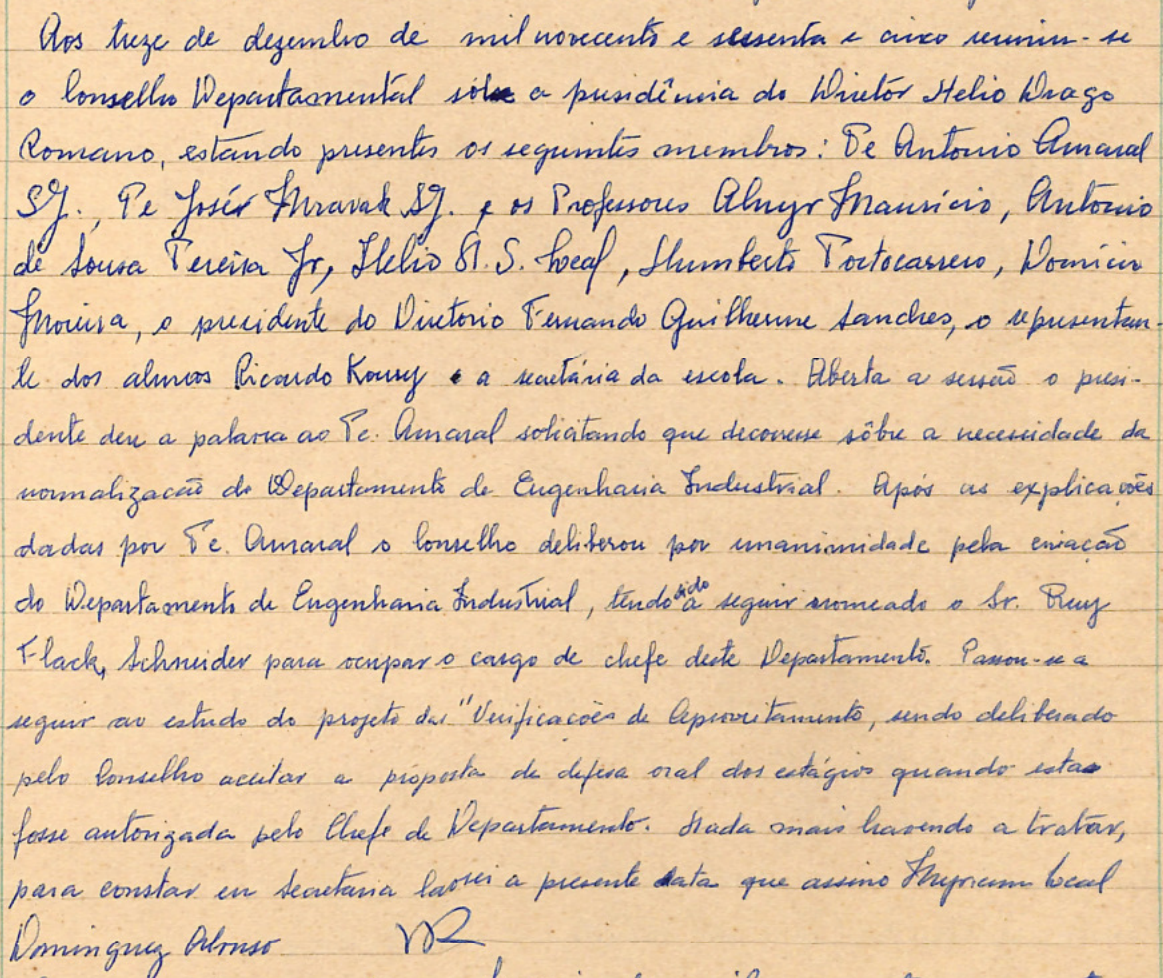 Aos treze de dezembro de mil novecento e sessenta e cinco reuniu-se
o Conselho Departamental sôbre a presidência do Diretor Helio Drago
Romano, estando presentes os seguintes membros: Pe Antonio Amaral
SJ., Pe Joser Mravak SJ. e os Professores Almyr Mauricio, Antonio
de Sousa Pereira Jr, Helio A. S. Leal, Humberto Portocarrero, Domicio
Moreira, o presidente do Diretorio Fernando Guilherme Sanches, o representan-
te dos alunos Ricardo Koury e a secretária da escola. Aberta a sessão o presi-
dente deu a palavra ao Pe. Amaral solicitando que decorresse sôbre a necessidade da
normalização do Departamento de Engenharia Industrial. Após as explicações
dadas por Pe. Amaral o Conselho deliberou por unanimidade pela criação
do Departamento de Engenharia Industrial, tendo sido a seguir nomeado o Sr. Ruy
Flack, Schneider para ocupar o cargo de chefe deste Departamento. Passou-se a
seguir ao estudo do projeto das "Verificações de Aproveitamento, sendo deliberado
pelo Conselho aceitar a proposta de defesa oral dos estágios quando esta
fosse autorizada pelo Chefe de Departamento. Nada mais havendo a tratar,
para constar eu Secretaria lavrei a presente data que assino Myriam Leal
Dominguez Alonso